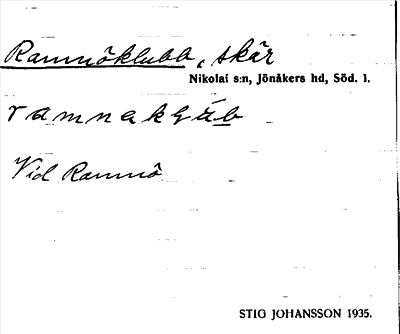 Ramnöklubb, skär
Nikolai s:n, Jönåkers hd, Söd. l.
Vid Ramnö
STIG JOHANSSON 1935.